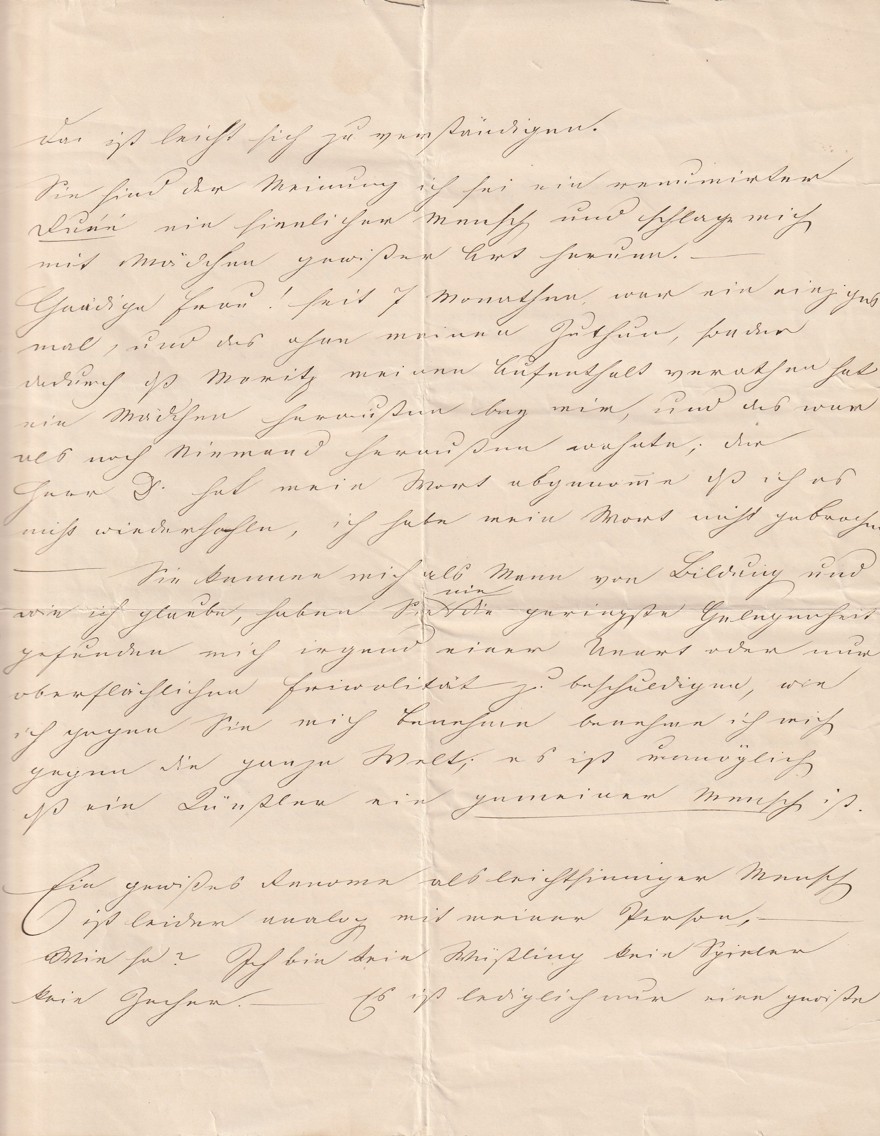 Das ist leicht sich zu verständigen.
Sie sind der Meinung ich sei ein renumirter
ein sinnlicher Mensch und schlage mich
mit Mädchen gewißer Art herum. —
Gnädige Frau! seit 7 Monathen war ein einziges
mal, und das ohne meinen Zuthun, sonder
dadurch dß Moritz meinen Aufenthalt verathen hat
ein Mädchen heraußen bey mir, und das war
als noch Niemand heraußen wohnte; die
Herr D. hat mein Wort abgenom̄e dß ich es
nicht wiederhohle, ich habe mein Wort nicht gebrochen
— Sie kennen mich als Mann von Bildung und
wie ich glaube, haben Sie nie die geringste Gelegenheit
gefunden mich irgend einer Unart oder nur
oberflächlichen Friwolität zu beschuldigen, wie
ich gegen Sie mich benehme benehme ich mich
gegen die ganze Welt; es ist unmöglich
dß ein Künstler ein gemeiner Mensch ist.
Ein gewißes Renome als leichtsinniger Mensch
ist leider analog mit meiner Person, —
Wie so? Ich bin kein Wüstling kein Spieler
kein Zecher. — Es ist lediglich nur eine gewiße